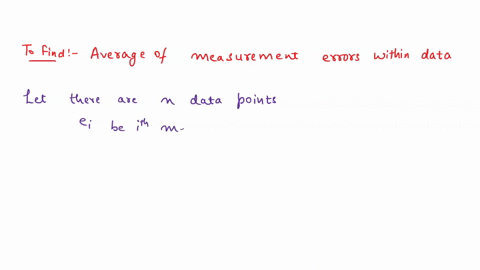 To find:- Average of measurement errors within data
Let there are n data points
ei be ith m-